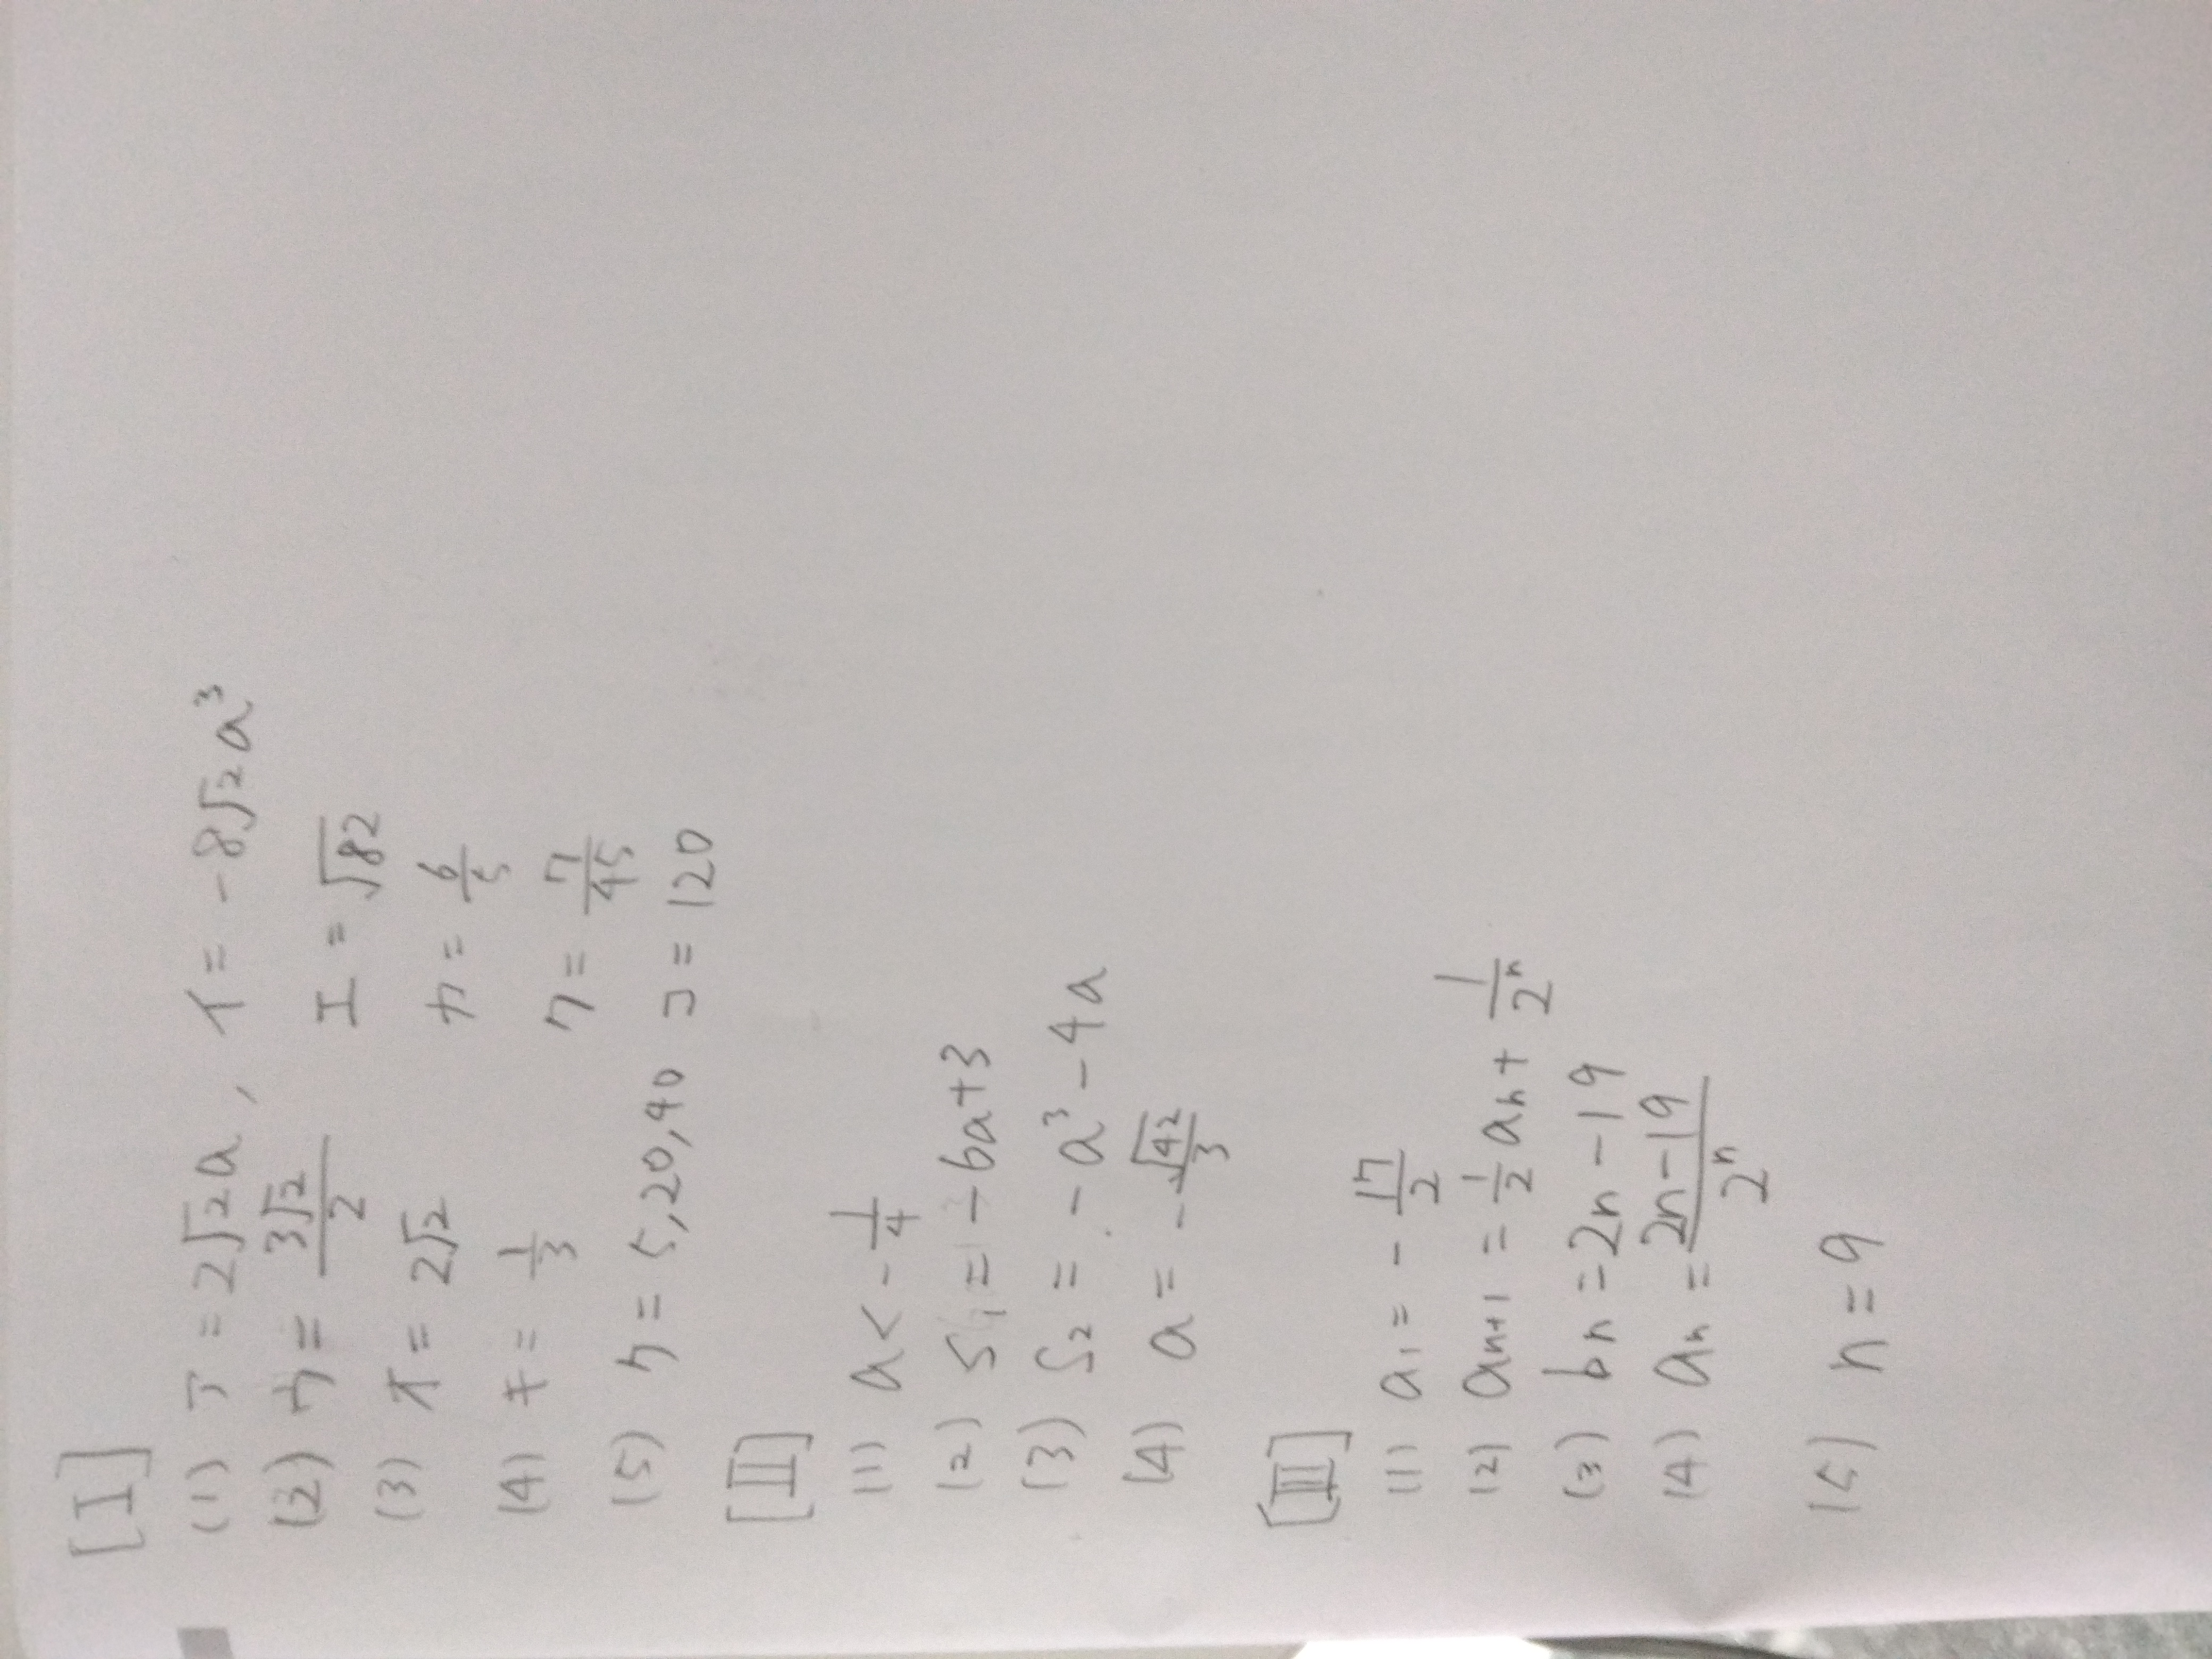 [I]
(1) ア=2√2a, イ=-8√2a³
(2) ウ=3√2/2 エ=√82
(3) オ=2√2 カ=6/5
(4) キ=1/3 ク=7/45
(5) ケ=5,20,40 コ=120
[II]
(1) a<-1/4
(2) S₁=-6a+3
(3) S₂=-a³-4a
(4) a=-√42/3
[III]
(1) a₁=-17/2
(2) aₙ₊₁=1/2aₙ+1/2ⁿ
(3) bₙ=2n-19
(4) aₙ=2n-19/2ⁿ
(5) n=9